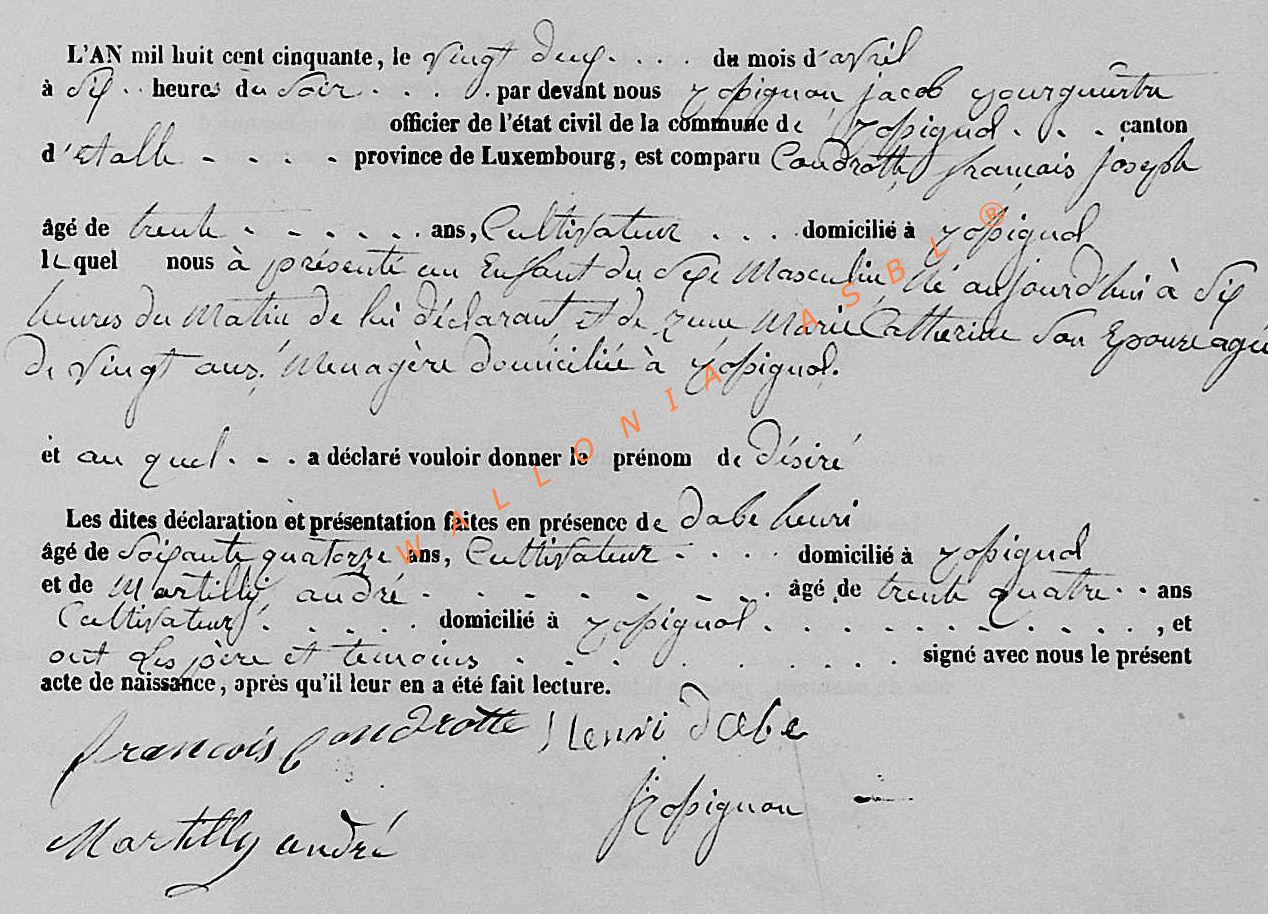 L'AN mil huit cent cinquante, le vingt deux . . . . du mois d'avril
à six . . heures du soir . . . . . par devant nous rossignon jacob bourguestre
officier de l'état civil de la commune de rossignol . . . canton
d'etalle - - - - province de Luxembourg, est comparu Condrotte françois joseph
âgé de trente . - - . . . ans, Cultivateur . . . domicilié à rossignol
lequel nous à présenté un Enfant du sexe Masculin né aujourd'hui à six
heures du Matin de lui déclarant et de Marie Catherine son Epouse agée
de vingt ans, Menagère domiciliée à rossignol.
et au quel . - . a déclaré vouloir donner le prénom de désiré
Les dites déclaration et présentation faites en présence de dabe henri
âgé de soixante quatorze ans, Cultivateur - . . . domicilié à rossignol
et de Martilly andré . - . - - - - . . âgé de trente quatre . . ans
Cultivateurs . . . . . domicilié à rossignol . . . . . . . . . . . , et
ont les père et temoins . . . . . . . . . signé avec nous le présent
acte de naissance, après qu'il leur en a été fait lecture.
francois Condrotte Henri dabe
rossignon
Martilly andré
WALLONIA ASBL ®